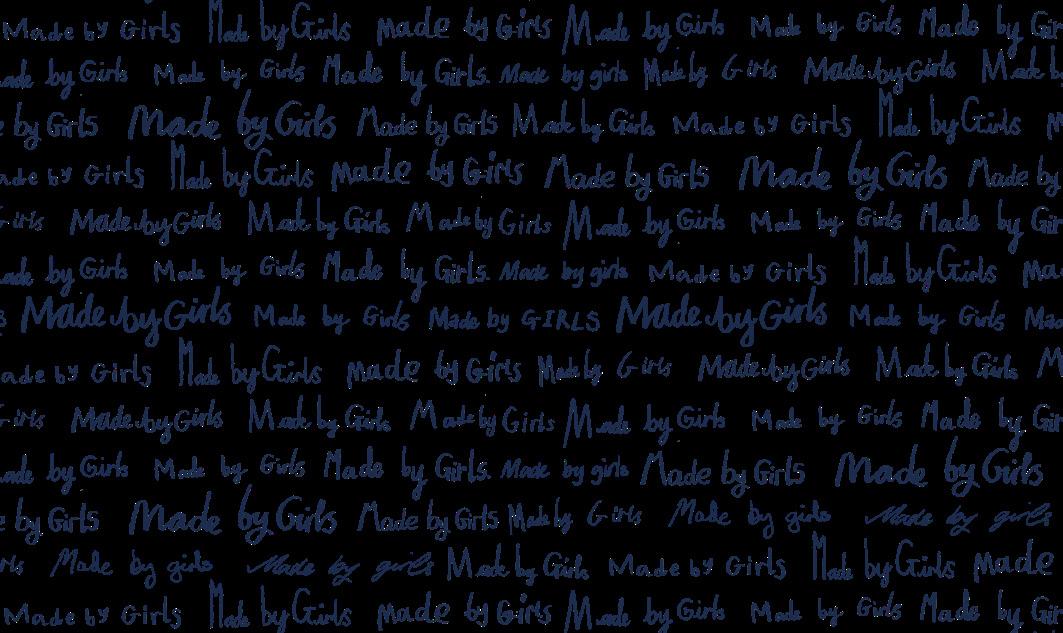 Made by Girls Made by Girls Made by Girls Made by Girls Made by Girls Made by
made by Girls Made by Girls Made by Girls. Made by girls Made by Girls Made by Girls Made b
by Girls Made by Girls Made by Girls Made by Girls Made by Girls Made by Girls
ade by Girls Made by Girls Made by Girls Made by Girls Made by Girls Made by
Girls Made by Girls Made by Girls Made by Girls Made by Girls Made by Girls Made by
made by Girls Made by Girls Made by Girls. Made by girls Made by Girls Made by Girls
Made by Girls Made by Girls Made by GIRLS Made by Girls Made by Girls
ade by Girls Made by Girls Made by Girls Made by Girls Made by Girls Made by Girls
Girls Made by Girls Made by Girls Made by Girls Made by Girls Made by Girls Made by
made by Girls Made by Girls Made by Girls. Made by girls Made by Girls Made by Girls
by Girls Made by Girls Made by Girls Made by Girls Made by girls Made by girls
Made by girls Made by girls Made by Girls Made by Girls Made by Girls Made
Made by Girls Made by Girls Made by Girls Made by Girls Made by Girls Made by